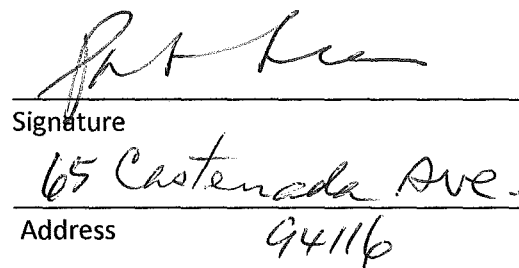 Signature
65 Castenada Ave.
Address
94116